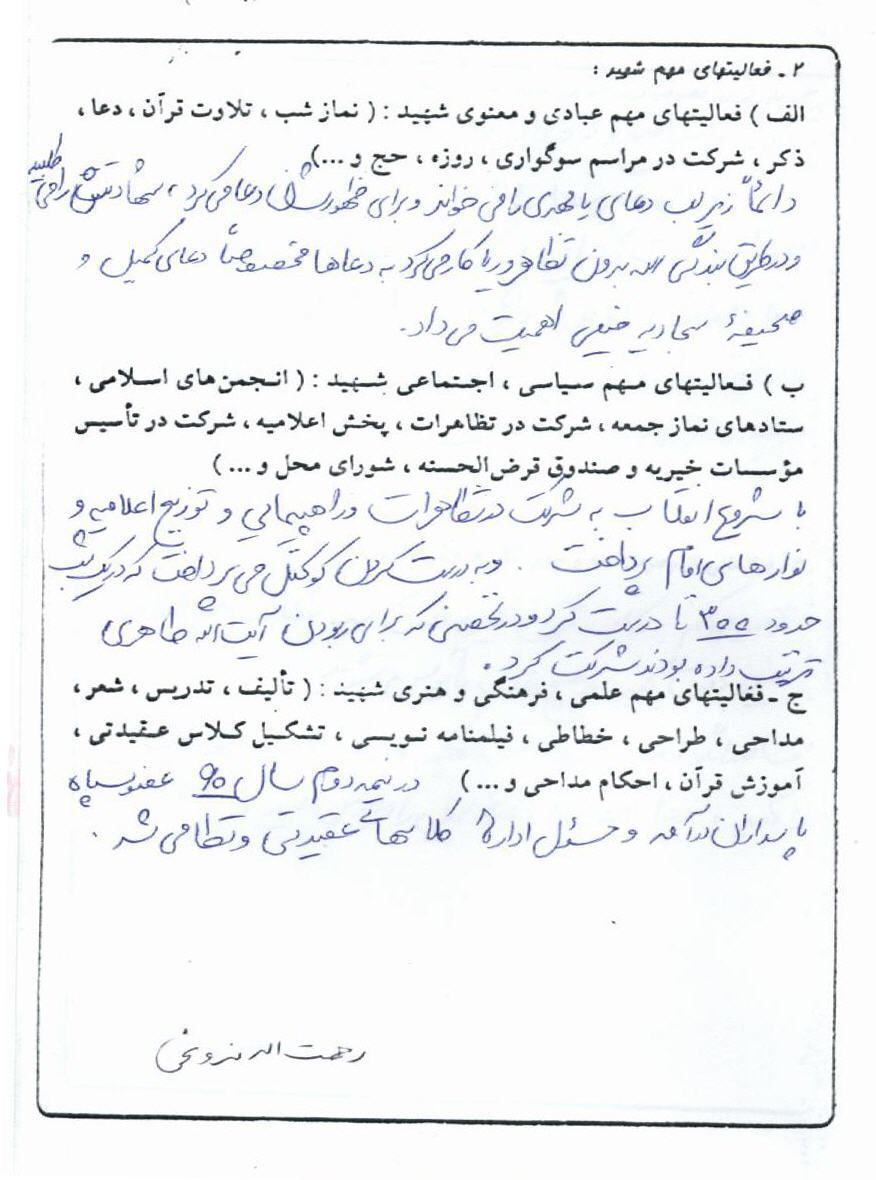 ۲ ـ فعالیتهای مهم شهید :
الف ) فعالیتهای مهم عبادی و معنوی شهید : ( نماز شب ، تلاوت قرآن ، دعا ،
ذکر ، شرکت در مراسم سوگواری ، روزه ، حج و ...)
دائماً زیر لب دعای یا مهدی را می خواند و برای ظهورشان دعا می کرد ، شهادتش را می طلبید
و در طریق بندگی الله بدون تظاهر و ریا کار می کرد به دعاها مخصوصاً دعای کمیل و
صحیفهٔ سجادیه خیلی اهمیت می داد.
ب ) فعالیتهای مهم سیاسی ، اجتماعی شهید : ( انجمن‌های اسلامی ،
ستادهای نماز جمعه ، شرکت در تظاهرات ، پخش اعلامیه ، شرکت در تأسیس
مؤسسات خیریه و صندوق قرض‌الحسنه ، شورای محل و ... )
با شروع انقلاب به شرکت در تظاهرات و راهپیمایی و توزیع اعلامیه و
نوارهای امام پرداخت . و به درست کردن کوکتل می پرداخت که در یک شب
حدود ۳۰۰ تا درست کرد و در تحصنی که برای ربودن آیت الله طاهری
ترتیب داده بودند شرکت کرد .
ج ـ فعالیتهای مهم علمی ، فرهنگی و هنری شهید : ( تألیف ، تدریس ، شعر ،
مداحی ، طراحی ، خطاطی ، فیلمنامه نویسی ، تشکیل کلاس عقیدتی ،
آموزش قرآن ، احکام مداحی و ... ) در نیمه دوم سال عضو سپاه
پاسداران درآمد و مسئول اداره کلاسهای عقیدتی و نظامی شد .
رحمت اله